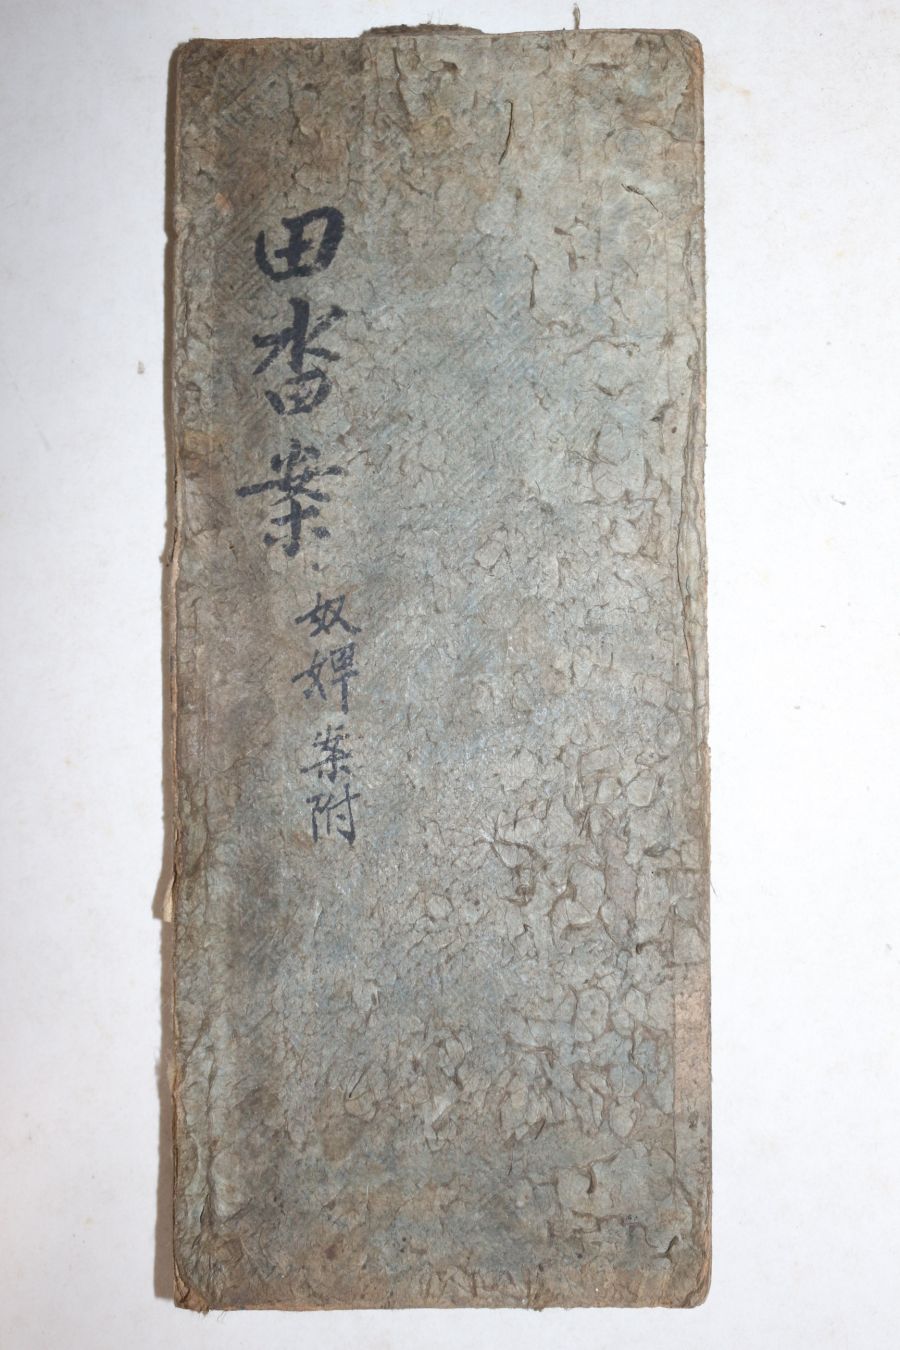 田畓案
奴婢案附